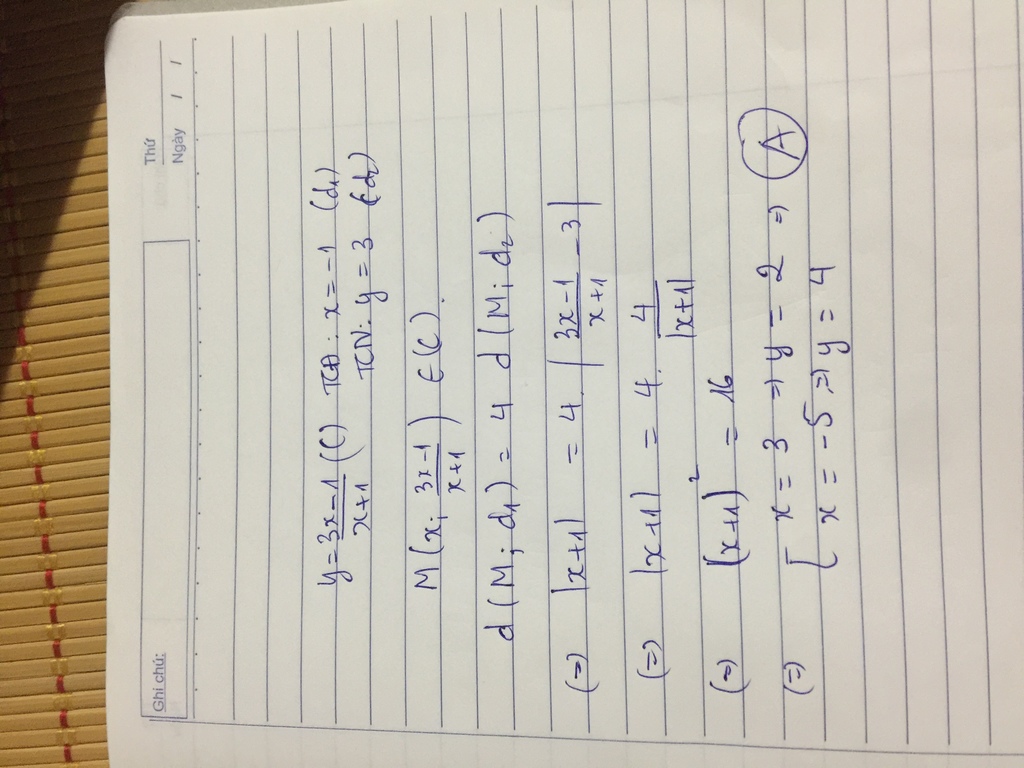 Ghi chú:
Thứ
Ngày / /
y = \frac{3x-1}{x+1} (C) TCĐ: x = -1 (d₁)
TCN: y = 3 (d₂)
M(x; \frac{3x-1}{x+1}) ∈ (C).
d(M; d₁) = 4 d(M; d₂)
(=) |x+1| = 4. |\frac{3x-1}{x+1} - 3|
(=) |x+1| = 4. \frac{4}{|x+1|}
(=) (x+1)² = 16
(=) [ x = 3 => y = 2 => A
x = -5 => y = 4